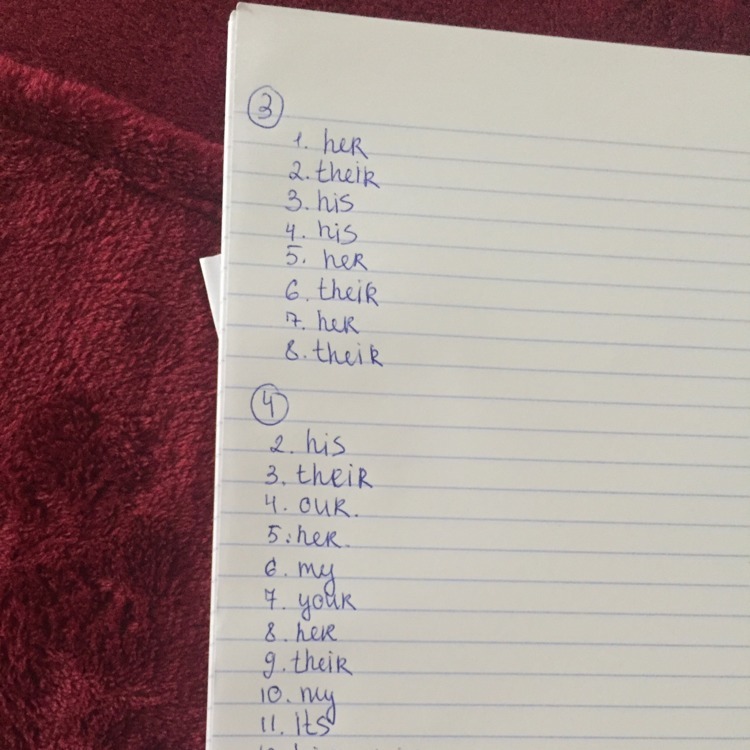 3
1. her
2. their
3. his
4. his
5. her
6. their
7. her
8. their
4
2. his
3. their
4. our.
5. her.
6. my
7. your
8. her
9. their
10. my
11. its